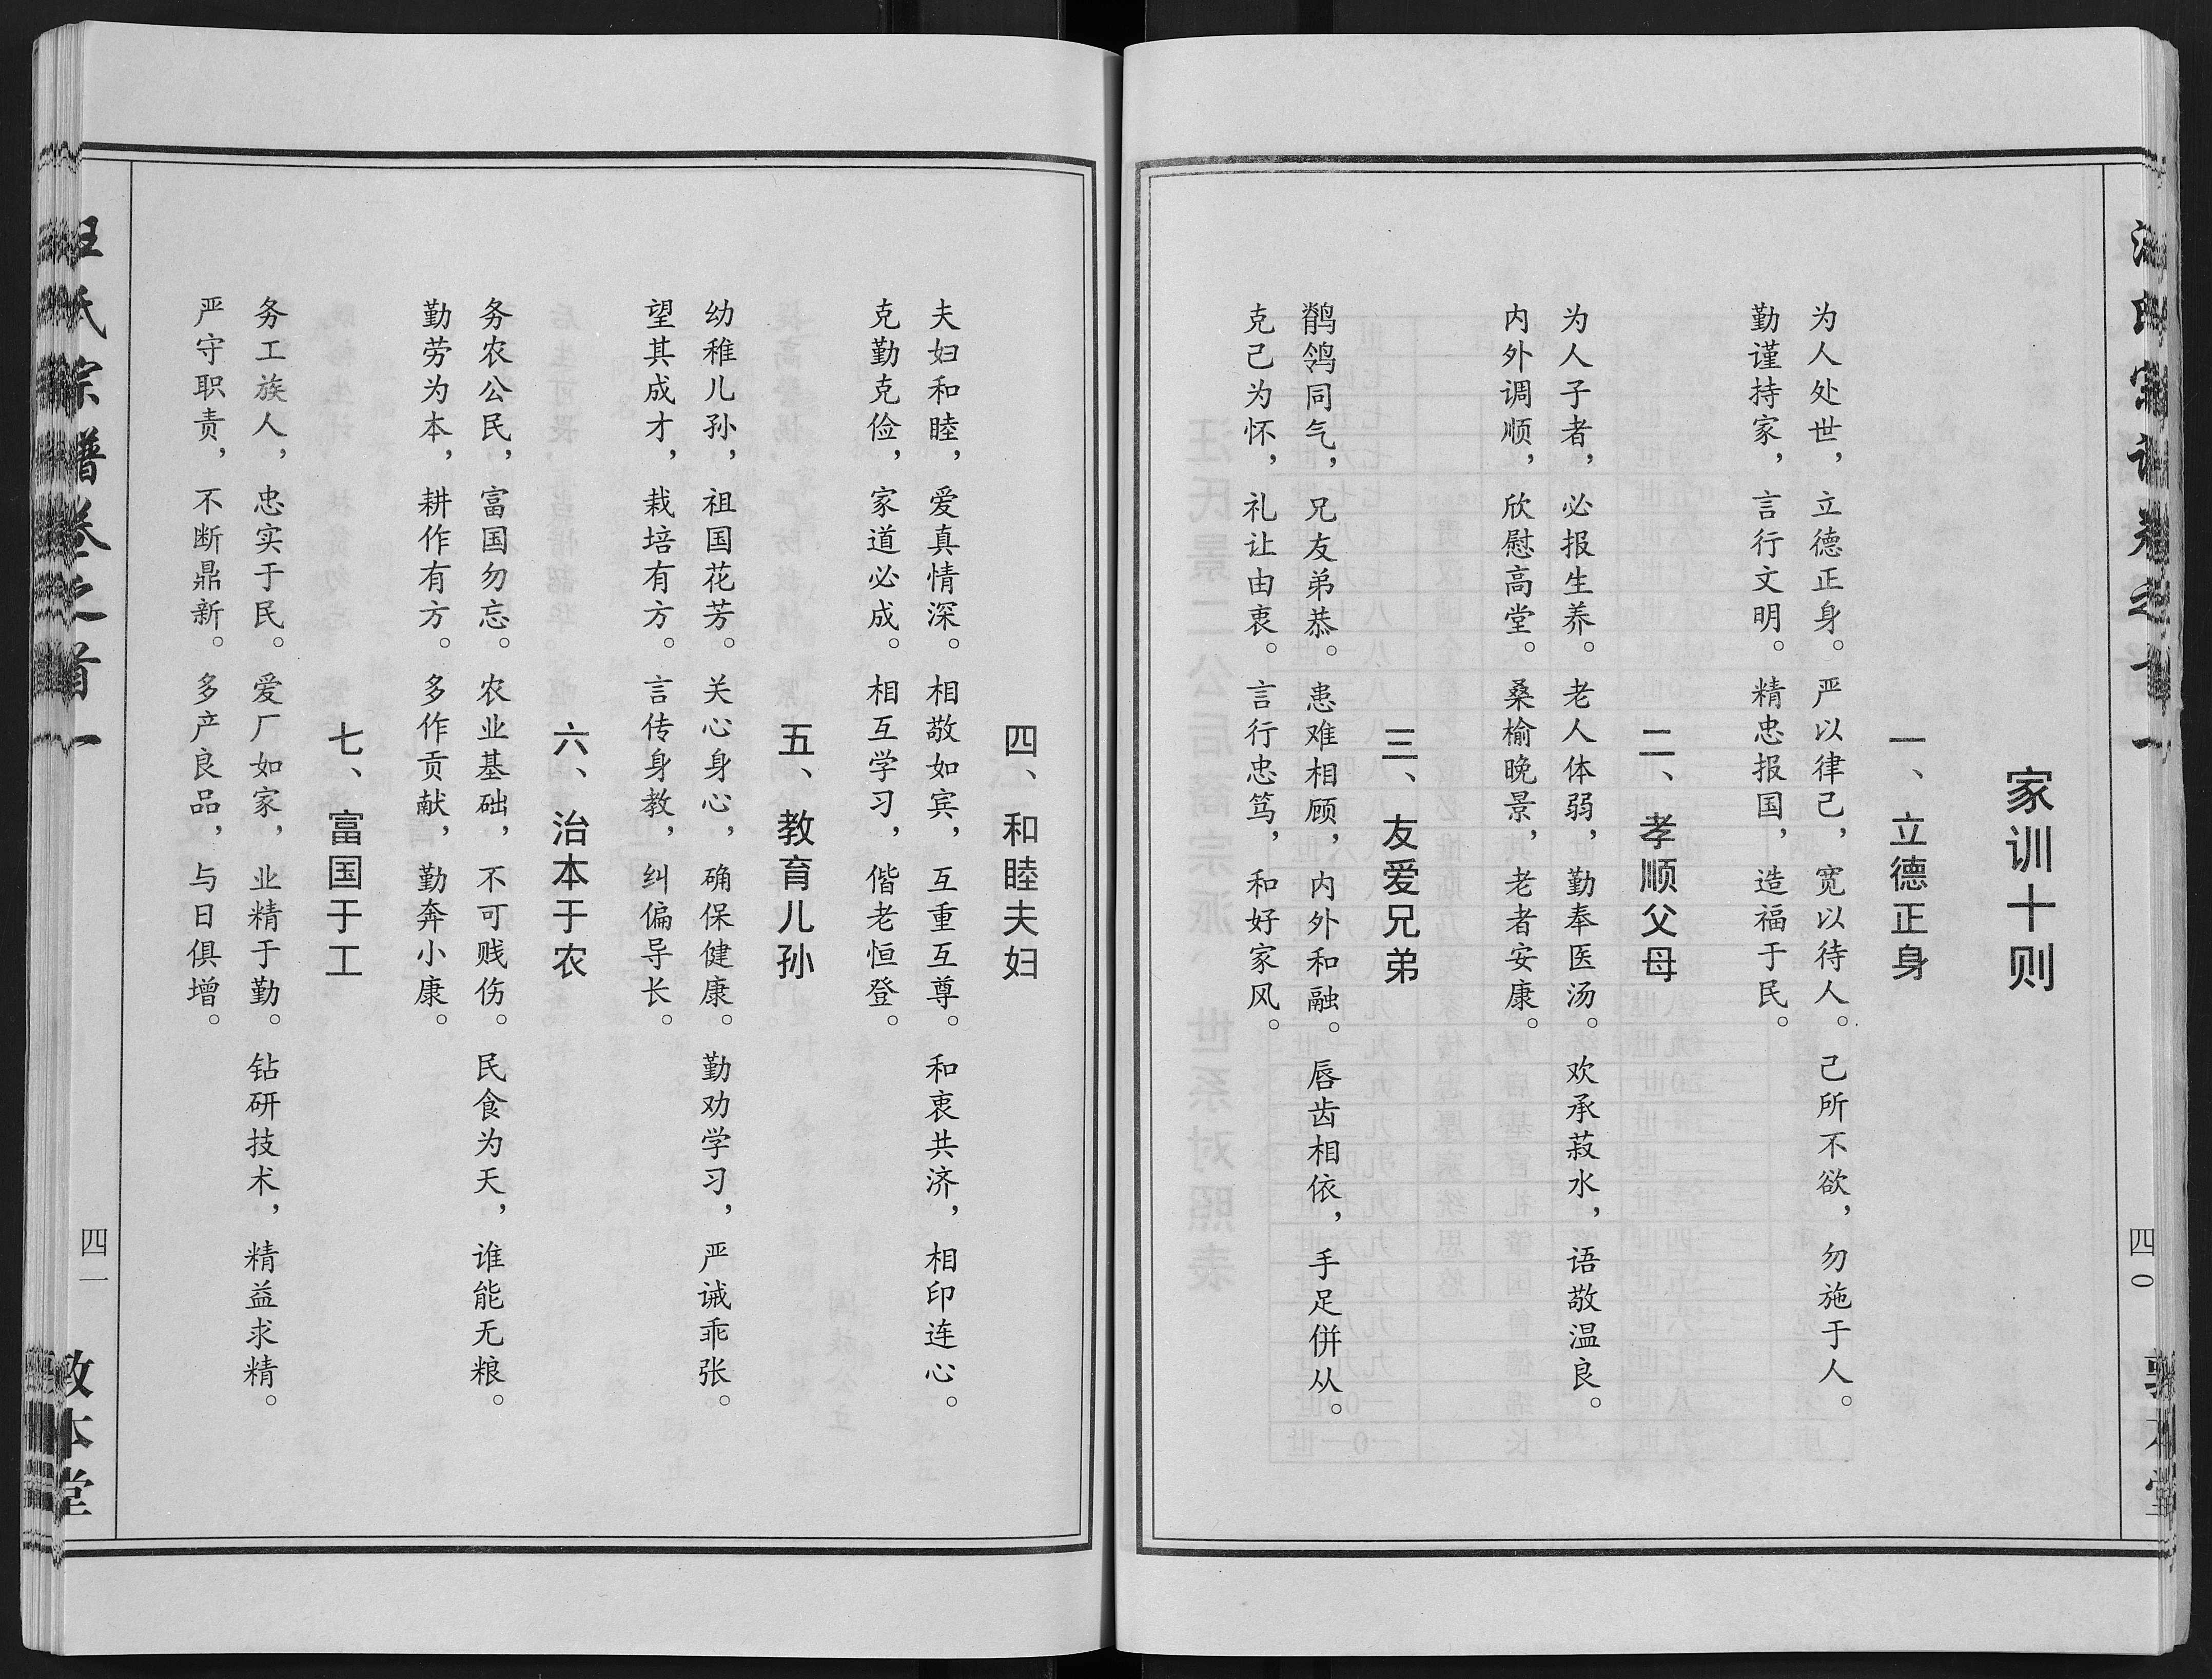 家训十则
一、立德正身
为人处世，立德正身。严以律己，宽以待人。己所不欲，勿施于人。
勤谨持家，言行文明。精忠报国，造福于民。
二、孝顺父母
为人子者，必报生养。老人体弱，勤奉医汤。欢承菽水，语敬温良。
内外调顺，欣慰高堂。桑榆晚景，老者安康。
三、友爱兄弟
鹡鸰同气，兄友弟恭。患难相顾，内外和融。唇齿相依，手足併从。
克己为怀，礼让由衷。言行忠笃，和好家风。
四〇
四、和睦夫妇
夫妇和睦，爱真情深。相敬如宾，互重互尊。和衷共济，相印连心。
克勤克俭，家道必成。相互学习，偕老恒登。
五、教育儿孙
幼稚儿孙，祖国花芳。关心身心，确保健康。勤劝学习，严诫乖张。
望其成才，栽培有方。言传身教，纠偏导长。
六、治本于农
务农公民，富国勿忘。农业基础，不可贱伤。民食为天，谁能无粮。
勤劳为本，耕作有方。多作贡献，勤奔小康。
七、富国于工
务工族人，忠实于民。爱厂如家，业精于勤。钻研技术，精益求精。
严守职责，不断鼎新。多产良品，与日俱增。
汪氏宗谱卷之首一
四一
敦本堂